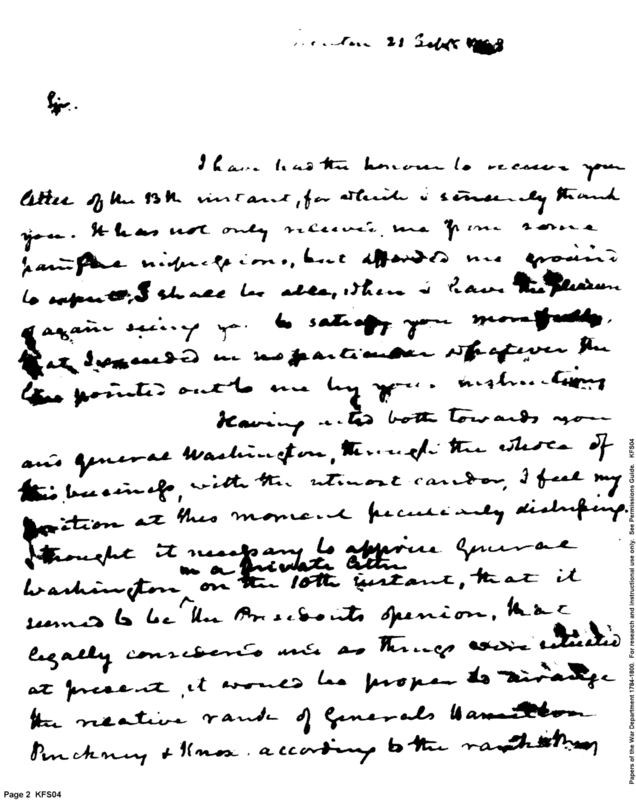 Trenton 21 Sept 1798
Sir.
I have had the honour to receive your
letter of the 13th instant, for which I sincerely thank
you. It has not only relieved me from some
painful impressions, but afforded me ground
to expect, I shall be able, when I have the pleasure
of again seeing you to satisfy you more fully,
that I exceeded in no particular whatever the
line pointed out to me by your instructions
Having acted both towards you
and General Washington, through the whole of
this business, with the utmost candor, I feel my
situation at this moment peculiarly distressing.
I thought it necessary to apprise General
in a private letter
Washington on the 10th instant, that it
seemed to be the Presidents openion, that
legally considered and as things were situated
at present, it would be proper to arrange
the relative rank of Generals Hamilton
Pinckney & Knox according to the rank they
Page 2 KFS04
Papers of the War Department 1784-1800. For research and instructional use only. See Permissions Guide. KFS04